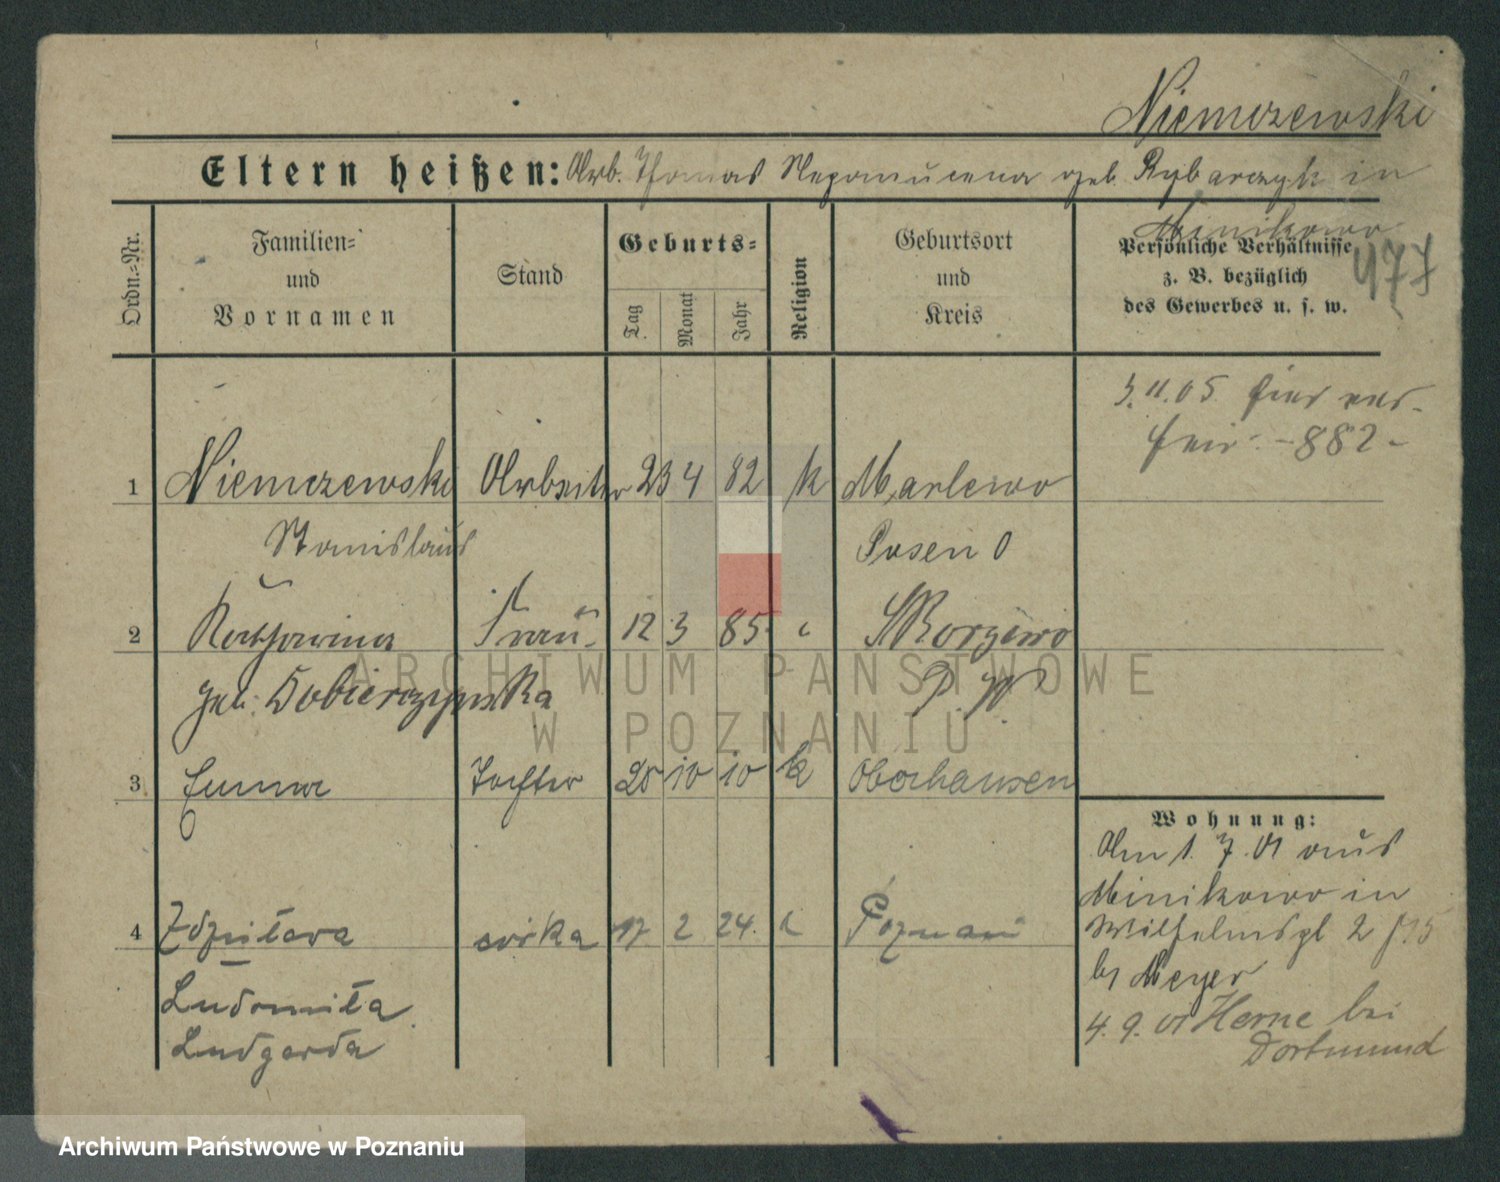 Niemczewski
Eltern heißen: Arb. Thomas Nepomucena geb. Rybarczyk in
Minikowo
Ordn.-Nr.
Familien-
und
Vornamen
Stand
Geburts-
Tag
Monat
Jahr
Religion
Geburtsort
und
Kreis
Persönliche Verhältnisse
z. B. bezüglich
des Gewerbes u. s. w.
477
3.11.05. hier
882
1 Niemczewski Arbeiter 23 4 82 k Marlewo
Stanislaus Posen O
2 Katharina Frau 12 3 85
geb. Dobierczynska P. W.
3 Emma Tochter 28 10 10 k Oberhausen
4 Zdzisława córka 17 2 24. Poznań
Ludomiła
Ludgarda
Wohnung:
Am 1. 7. 01 aus
Minikowo in
Wilhelmspl 2
bei Meyer
4. 9. 01 Herne bei
Dortmund
ARCHIWUM PAŃSTWOWE
W POZNANIU
Archiwum Państwowe w Poznaniu